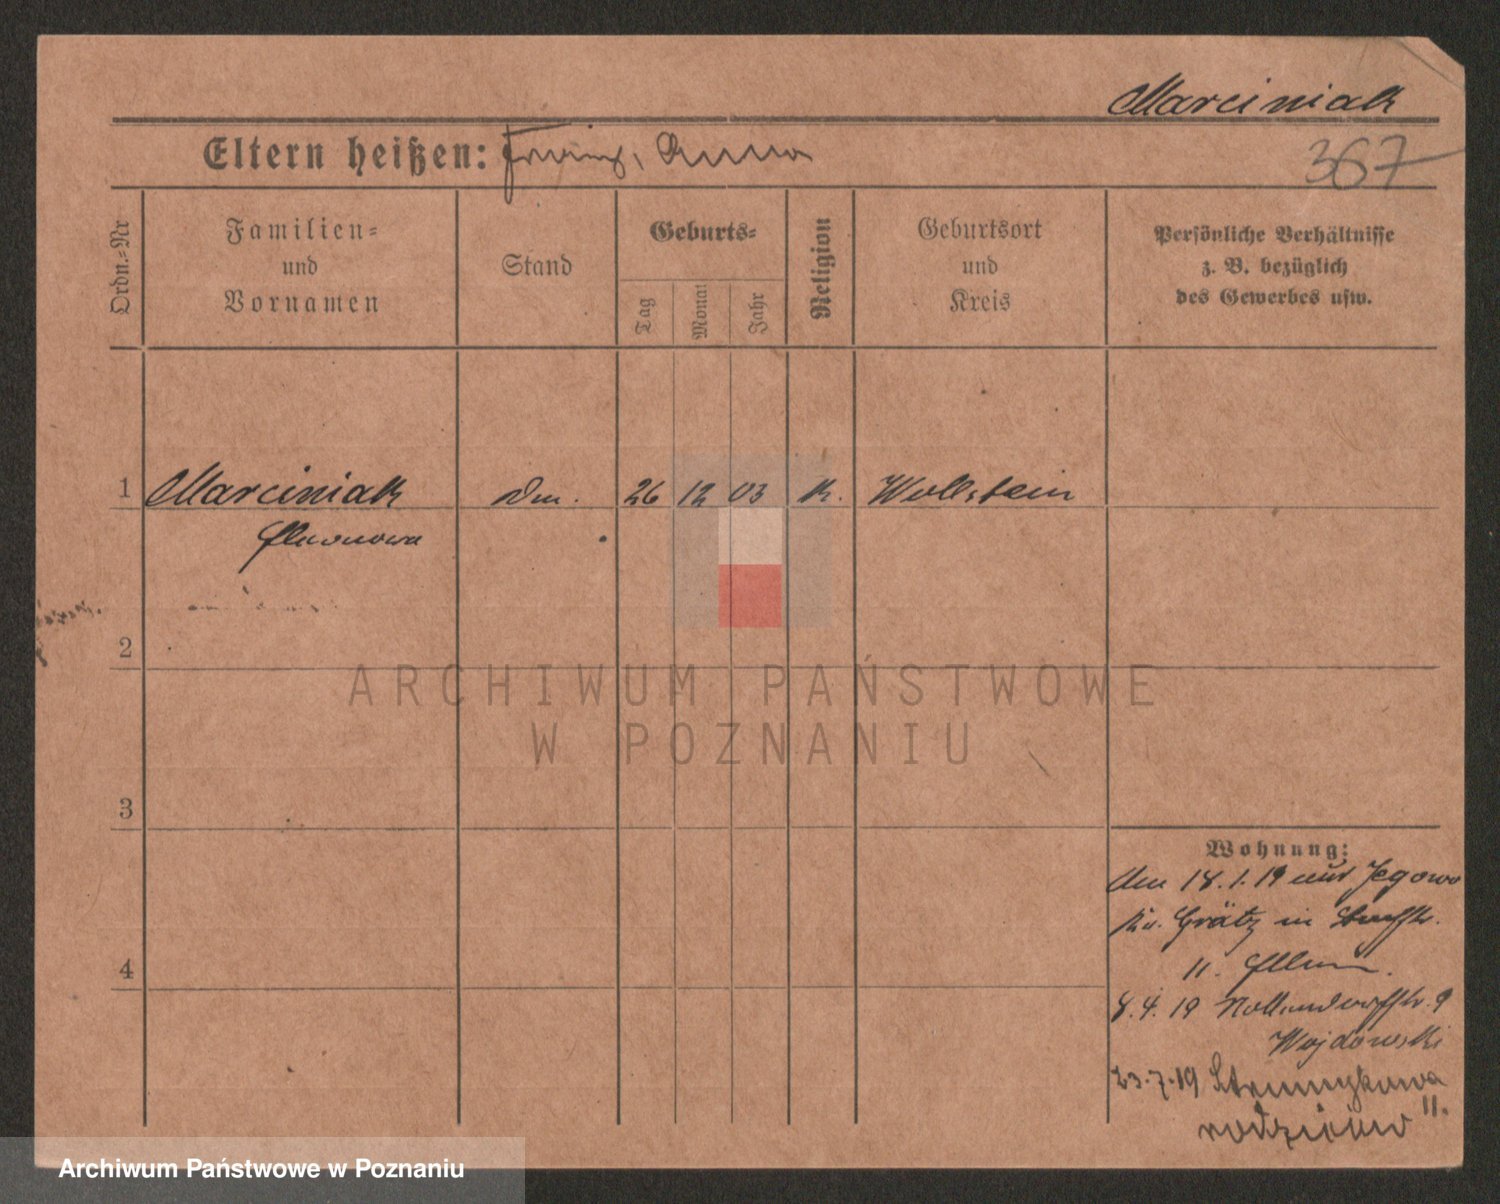 Marciniak
Eltern heißen: Franz, Anna
367
Ordn.-Nr
Familien-
und
Vornamen
Stand
Geburts-
Tag
Monat
Jahr
Religion
Geburtsort
und
Kreis
Persönliche Verhältnisse
z. B. bezüglich
des Gewerbes usw.
1
Marciniak
26 12 03 k. Wollstein
2
3
4
Wohnung:
Am 18.1.19 aus
Grätz in
11. Eltern.
8.4.19 Nollendorffstr. 9
Wojdowski
23.7.19 Strumykowa
11.
rodziców
ARCHIWUM PAŃSTWOWE
W POZNANIU
Archiwum Państwowe w Poznaniu